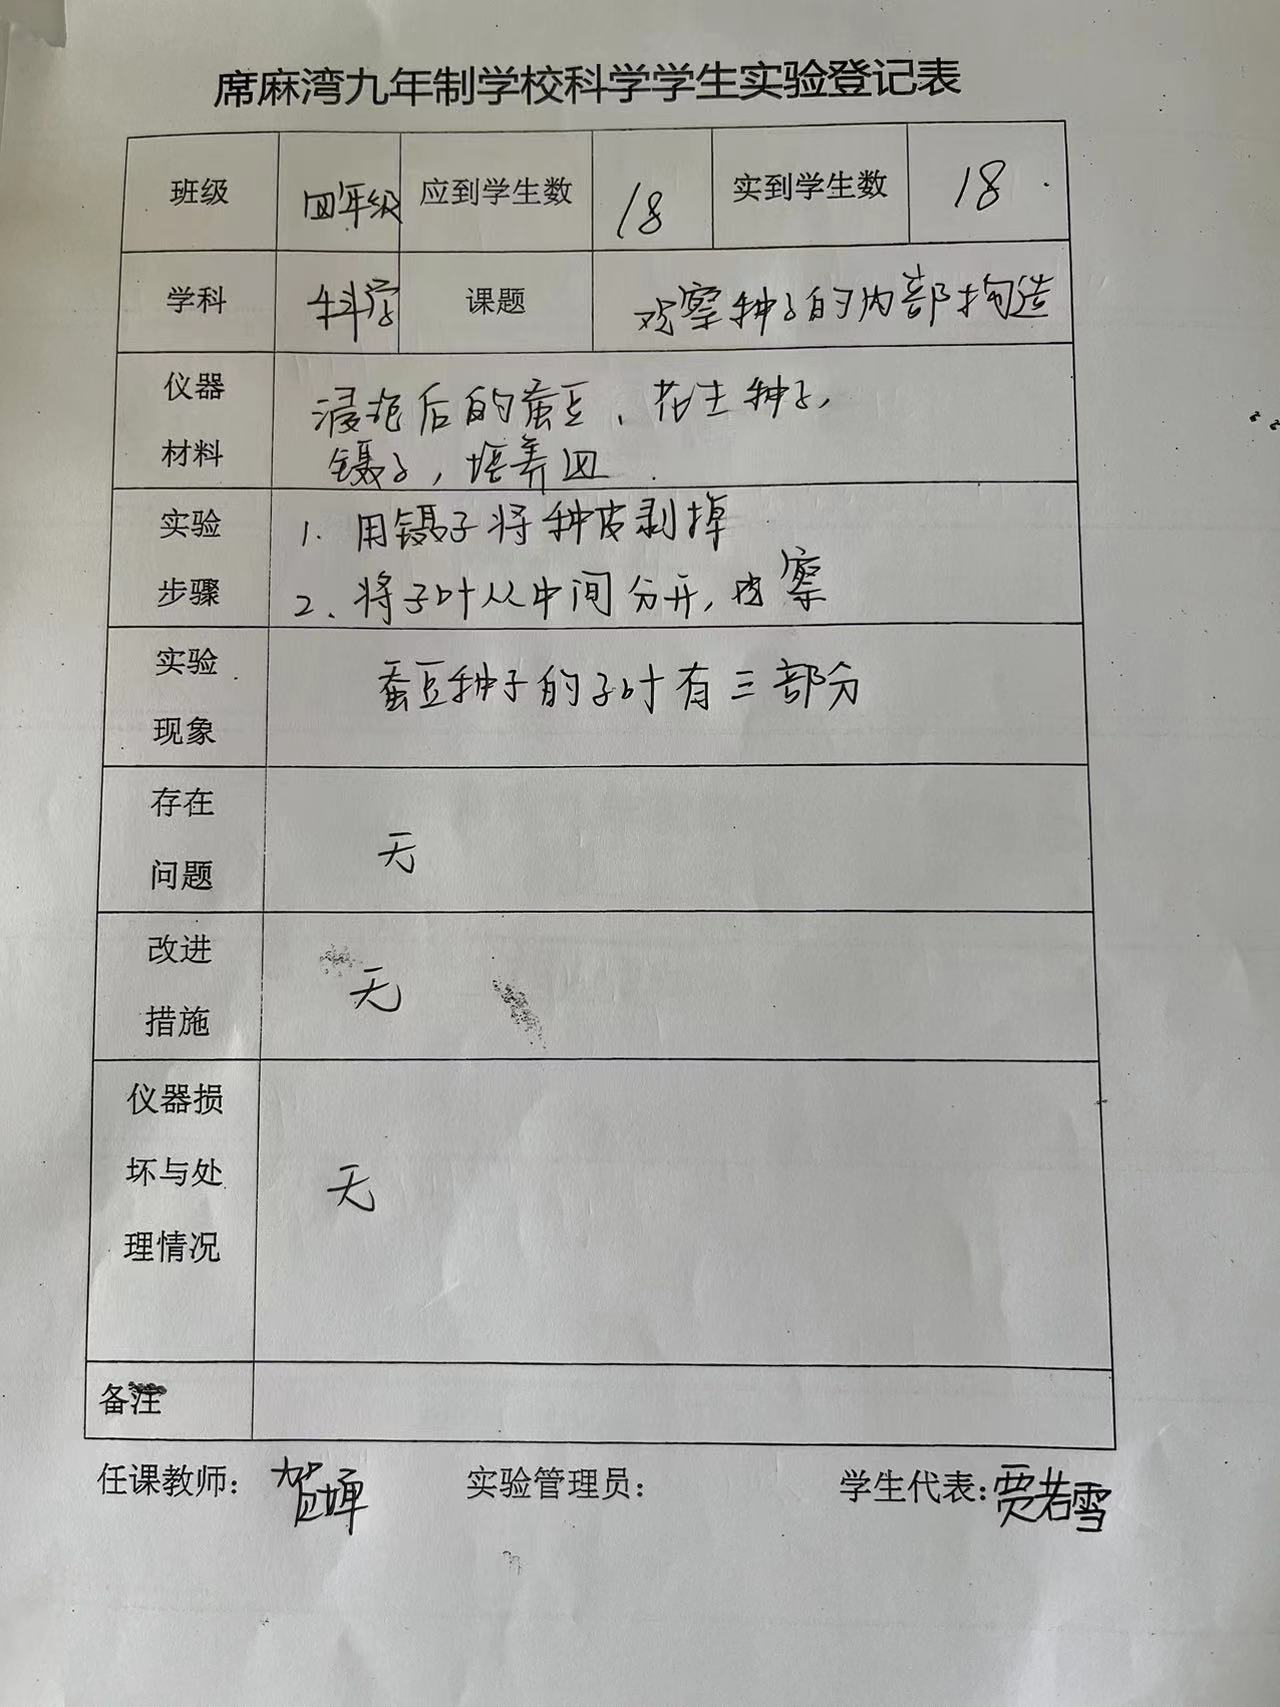 席麻湾九年制学校科学学生实验登记表
班级 四年级 应到学生数 18 实到学生数 18
学科 科学 课题 观察种子的内部构造
仪器 浸泡后的蚕豆、花生种子,
材料 镊子,培养皿.
实验 1. 用镊子将种皮剥掉
步骤 2. 将子叶从中间分开, 观察
实验 蚕豆种子的子叶有三部分
现象
存在
问题 无
改进
措施 无
仪器损
坏与处 无
理情况
备注
任课教师: 贺婵 实验管理员: 学生代表: 贾若雪